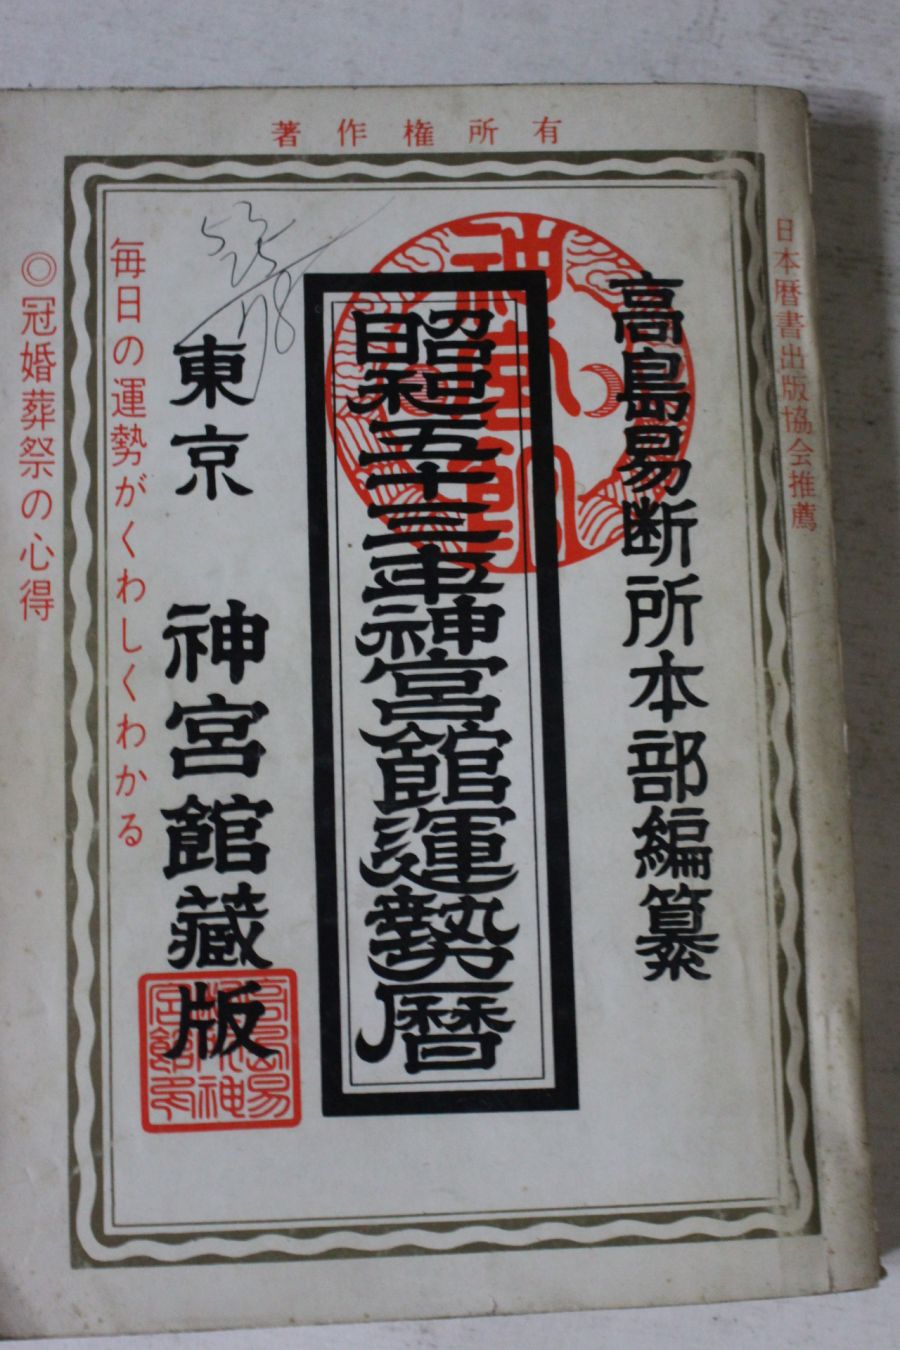 著作権所有
日本暦書出版協会推薦
高島易断所本部編纂
昭和五十三年神宮館運勢暦
東京 神宮館蔵版
毎日の運勢がくわしくわかる
◎冠婚葬祭の心得
神宮館